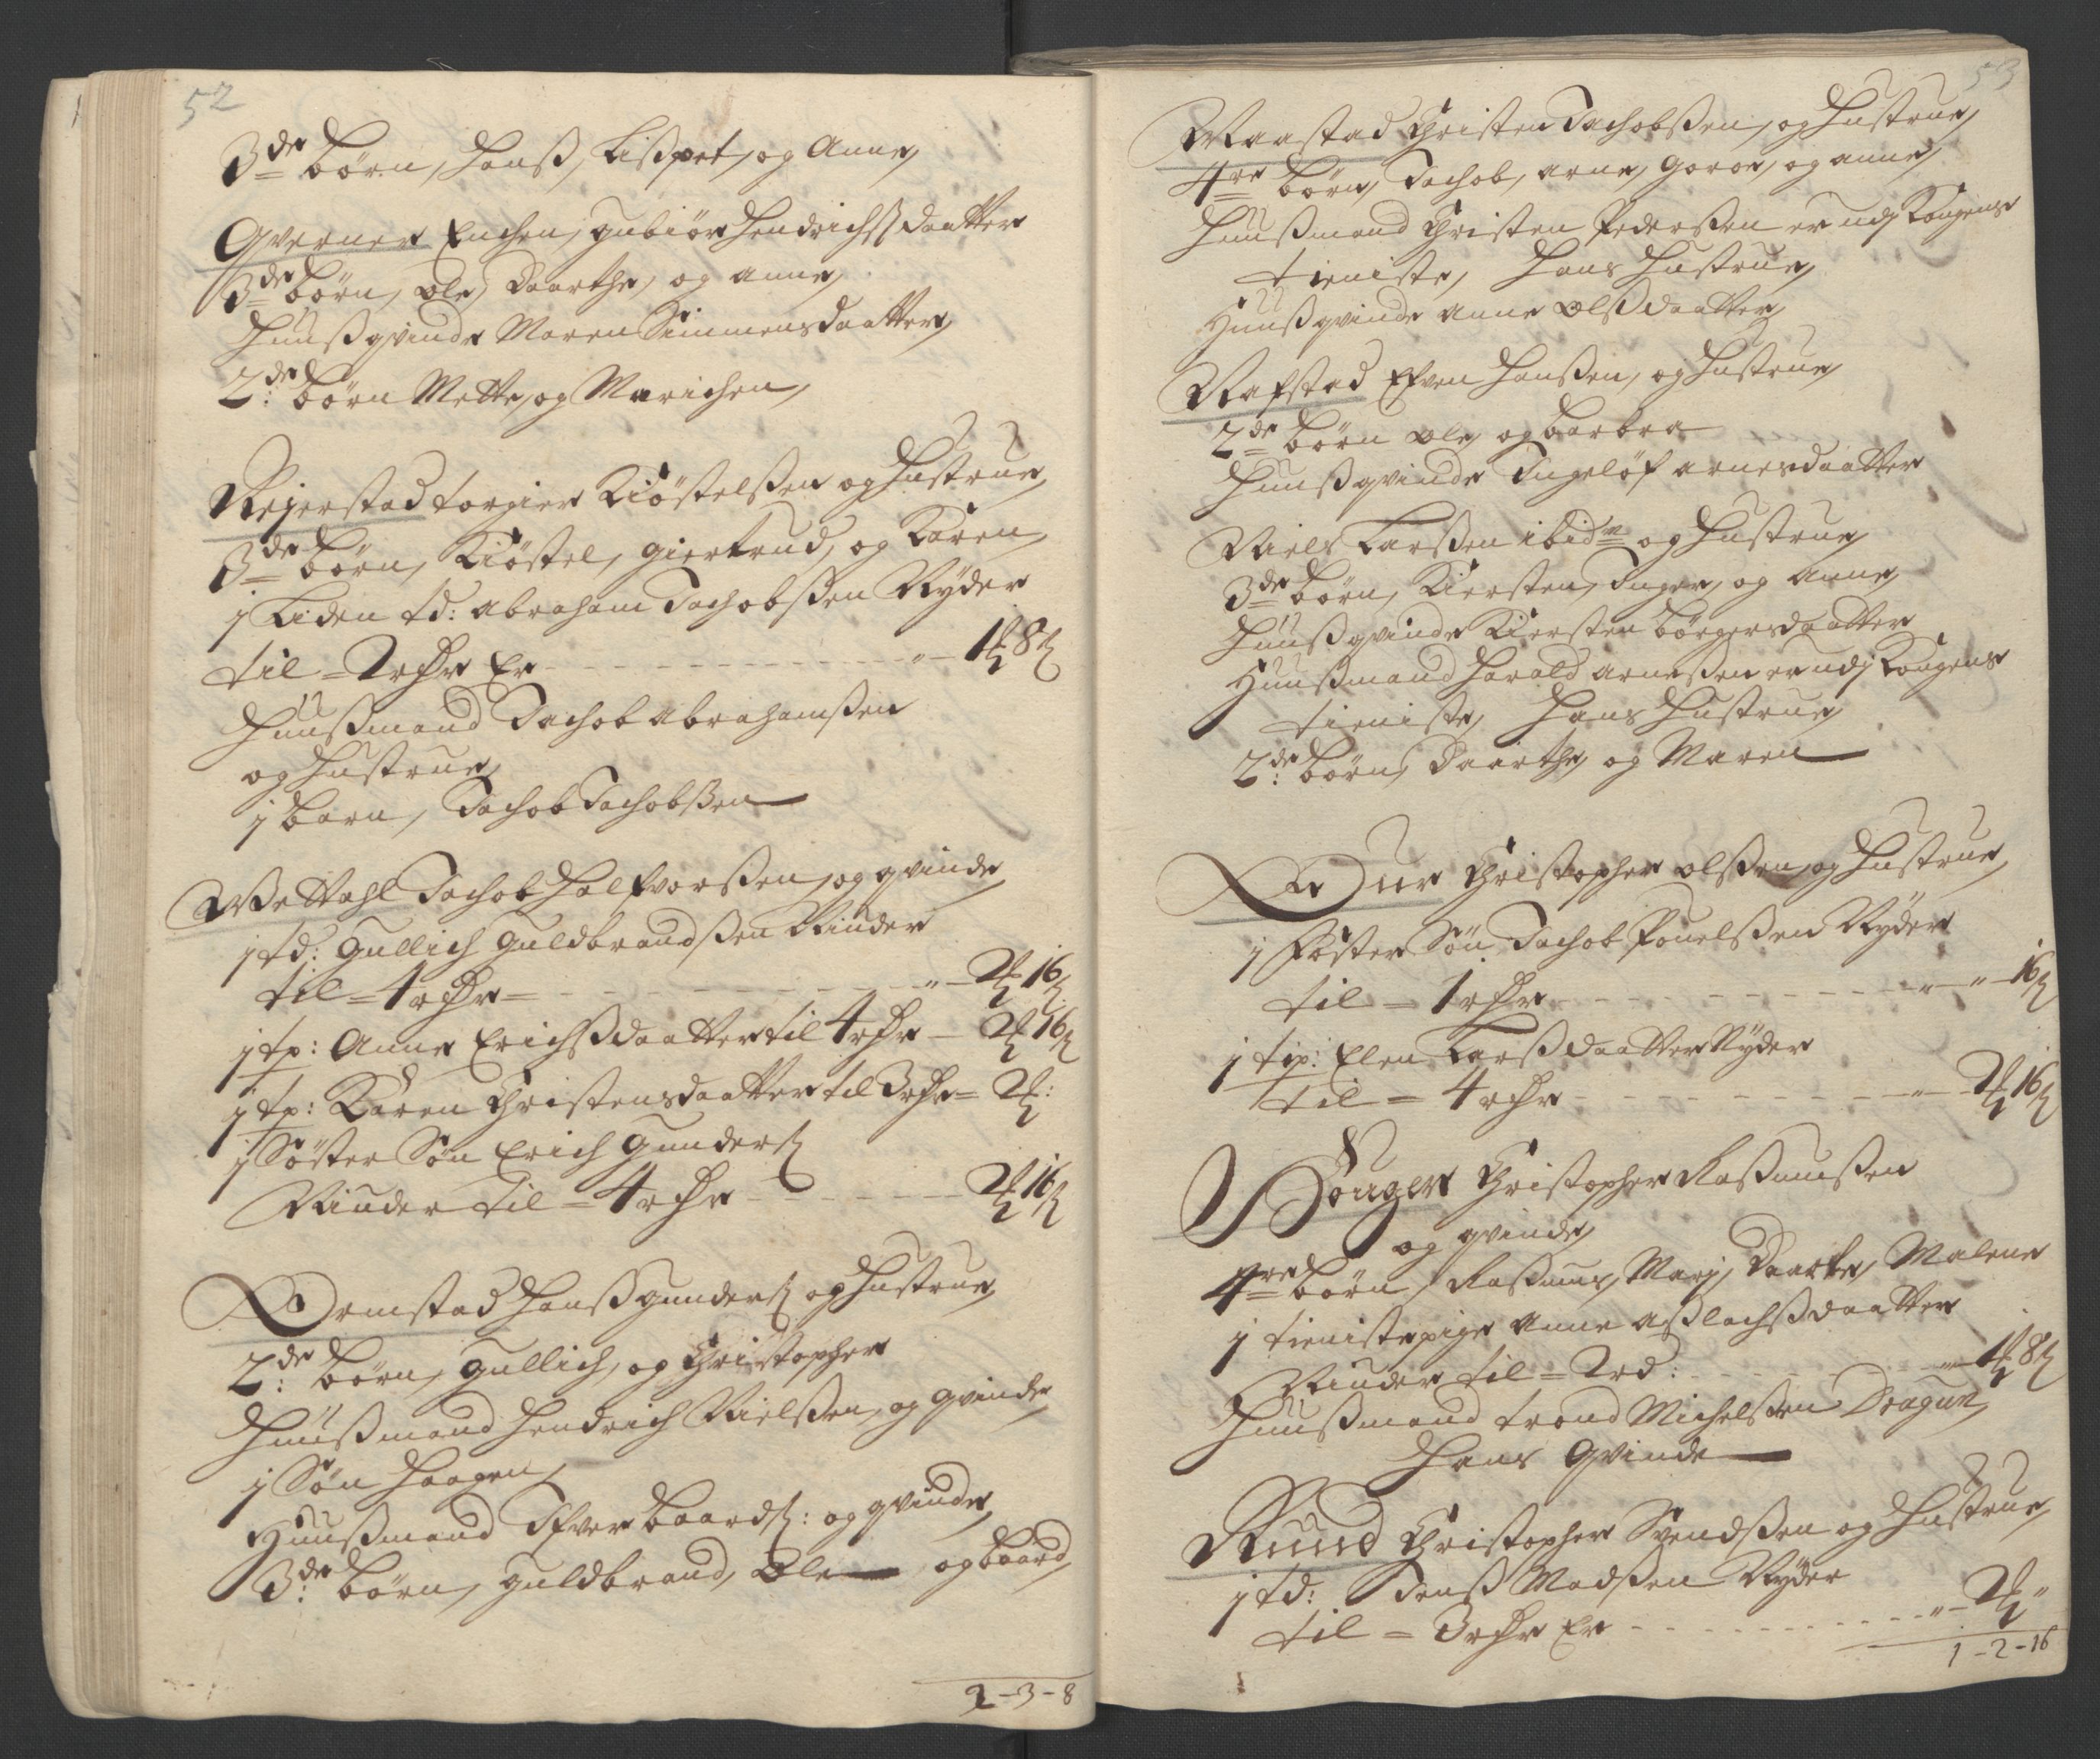 52
3de børn, Hanß, Lißpet, og Anne,
Qverner Enchen, Gubiør Hendrichsdaatter
3de børn, Ole, Daarthe, og anne,
Huußqvinde Maren Simmensdaatter,
2de: børn Mette, og Marichen,
Rejerstad torgier Kiöstelßen og Hustrue,
3de børn, Kiöstel, giertrud, og Karen
j Liden td: abraham Jachobßen Nyder
til = 2 rdr Er - - - " - 1 ℔ 8 ß
Huußmand Jachob abrahamßen
og Hustrue,
j barn, Jachob Jachobßen
Wettahl Jachob Halfvorßen, og qvinde
j td: Gullich Guldbrandßen Niuder
til = 4 rdr = - - - " - 2 ℔ 16 ß
j tp: Anne Erichsdaatter til 4 rdr - 2 ℔ 16 ß
j tp: Karen Christensdaatter til 3 rdr = 2 ℔:
j Söster Søn Erich Gunderß
Niuder til = 4 rdr - - - 2 ℔ 16 ß
Ormstad Hanß Gunderß og Hustrue,
2de: børn, Gullich, og Christopher
Huußmand Hendrich Nielßen, og qvinde,
j Søn Haagen,
Huußmand Ifver baardß: og qvinde,
3de: børn, guldbrand, Ole og baard,
2 - 3 - 8
53
Waastad Christen Jachobßen, og Hustrue,
4re børn, Jachob, arne, Goroe, og anne,
Huußmand Christen Pederßen er udj Kongens
tieniste, Hans Hustrue,
Huußqvinde anne Olßdaatter,
Rafstad Efven Hanßen, og Hustrue,
2de børn Ole, og barbra
Huußqvinde Ingeløf arnesdaatter
Niels Larßen ibidm og Hustrue,
3de børn, Kiersten, Inger, og anne,
Huußqvinde Kiersten börgersdaatter
Huußmand Harald arneßen er udj Kongens
tieniste, Hans Hustrue,
2de: børn, Daarthe, og Maren
Duer Christopher Olßen, og Hustrue,
j Foster Søn Jachob Pouelßen Nyder
til = 1 rdr - - - " - " - 16 ß
j tip: Elen Larßdaatter Nyder
til = 4 rdr - - - " - 2 ℔ 16 ß
Houger Christopher Raßmußen
og qvinde,
4re børn, Raßmus, Marj, Daarthe, Malene
j tienistepige anne aßlachßdaatter
Niuder til = 2 rd: - - - " - 1 ℔ 8 ß
Huußmand trond Michelßen Dragun
Hans Qvinde
Ruud Christopher Svendßen og Hustrue,
j td: Jenß Madßen Nyder
til = 3 rdr Er - - - " - 2 ℔ "
1 - 2 - 16